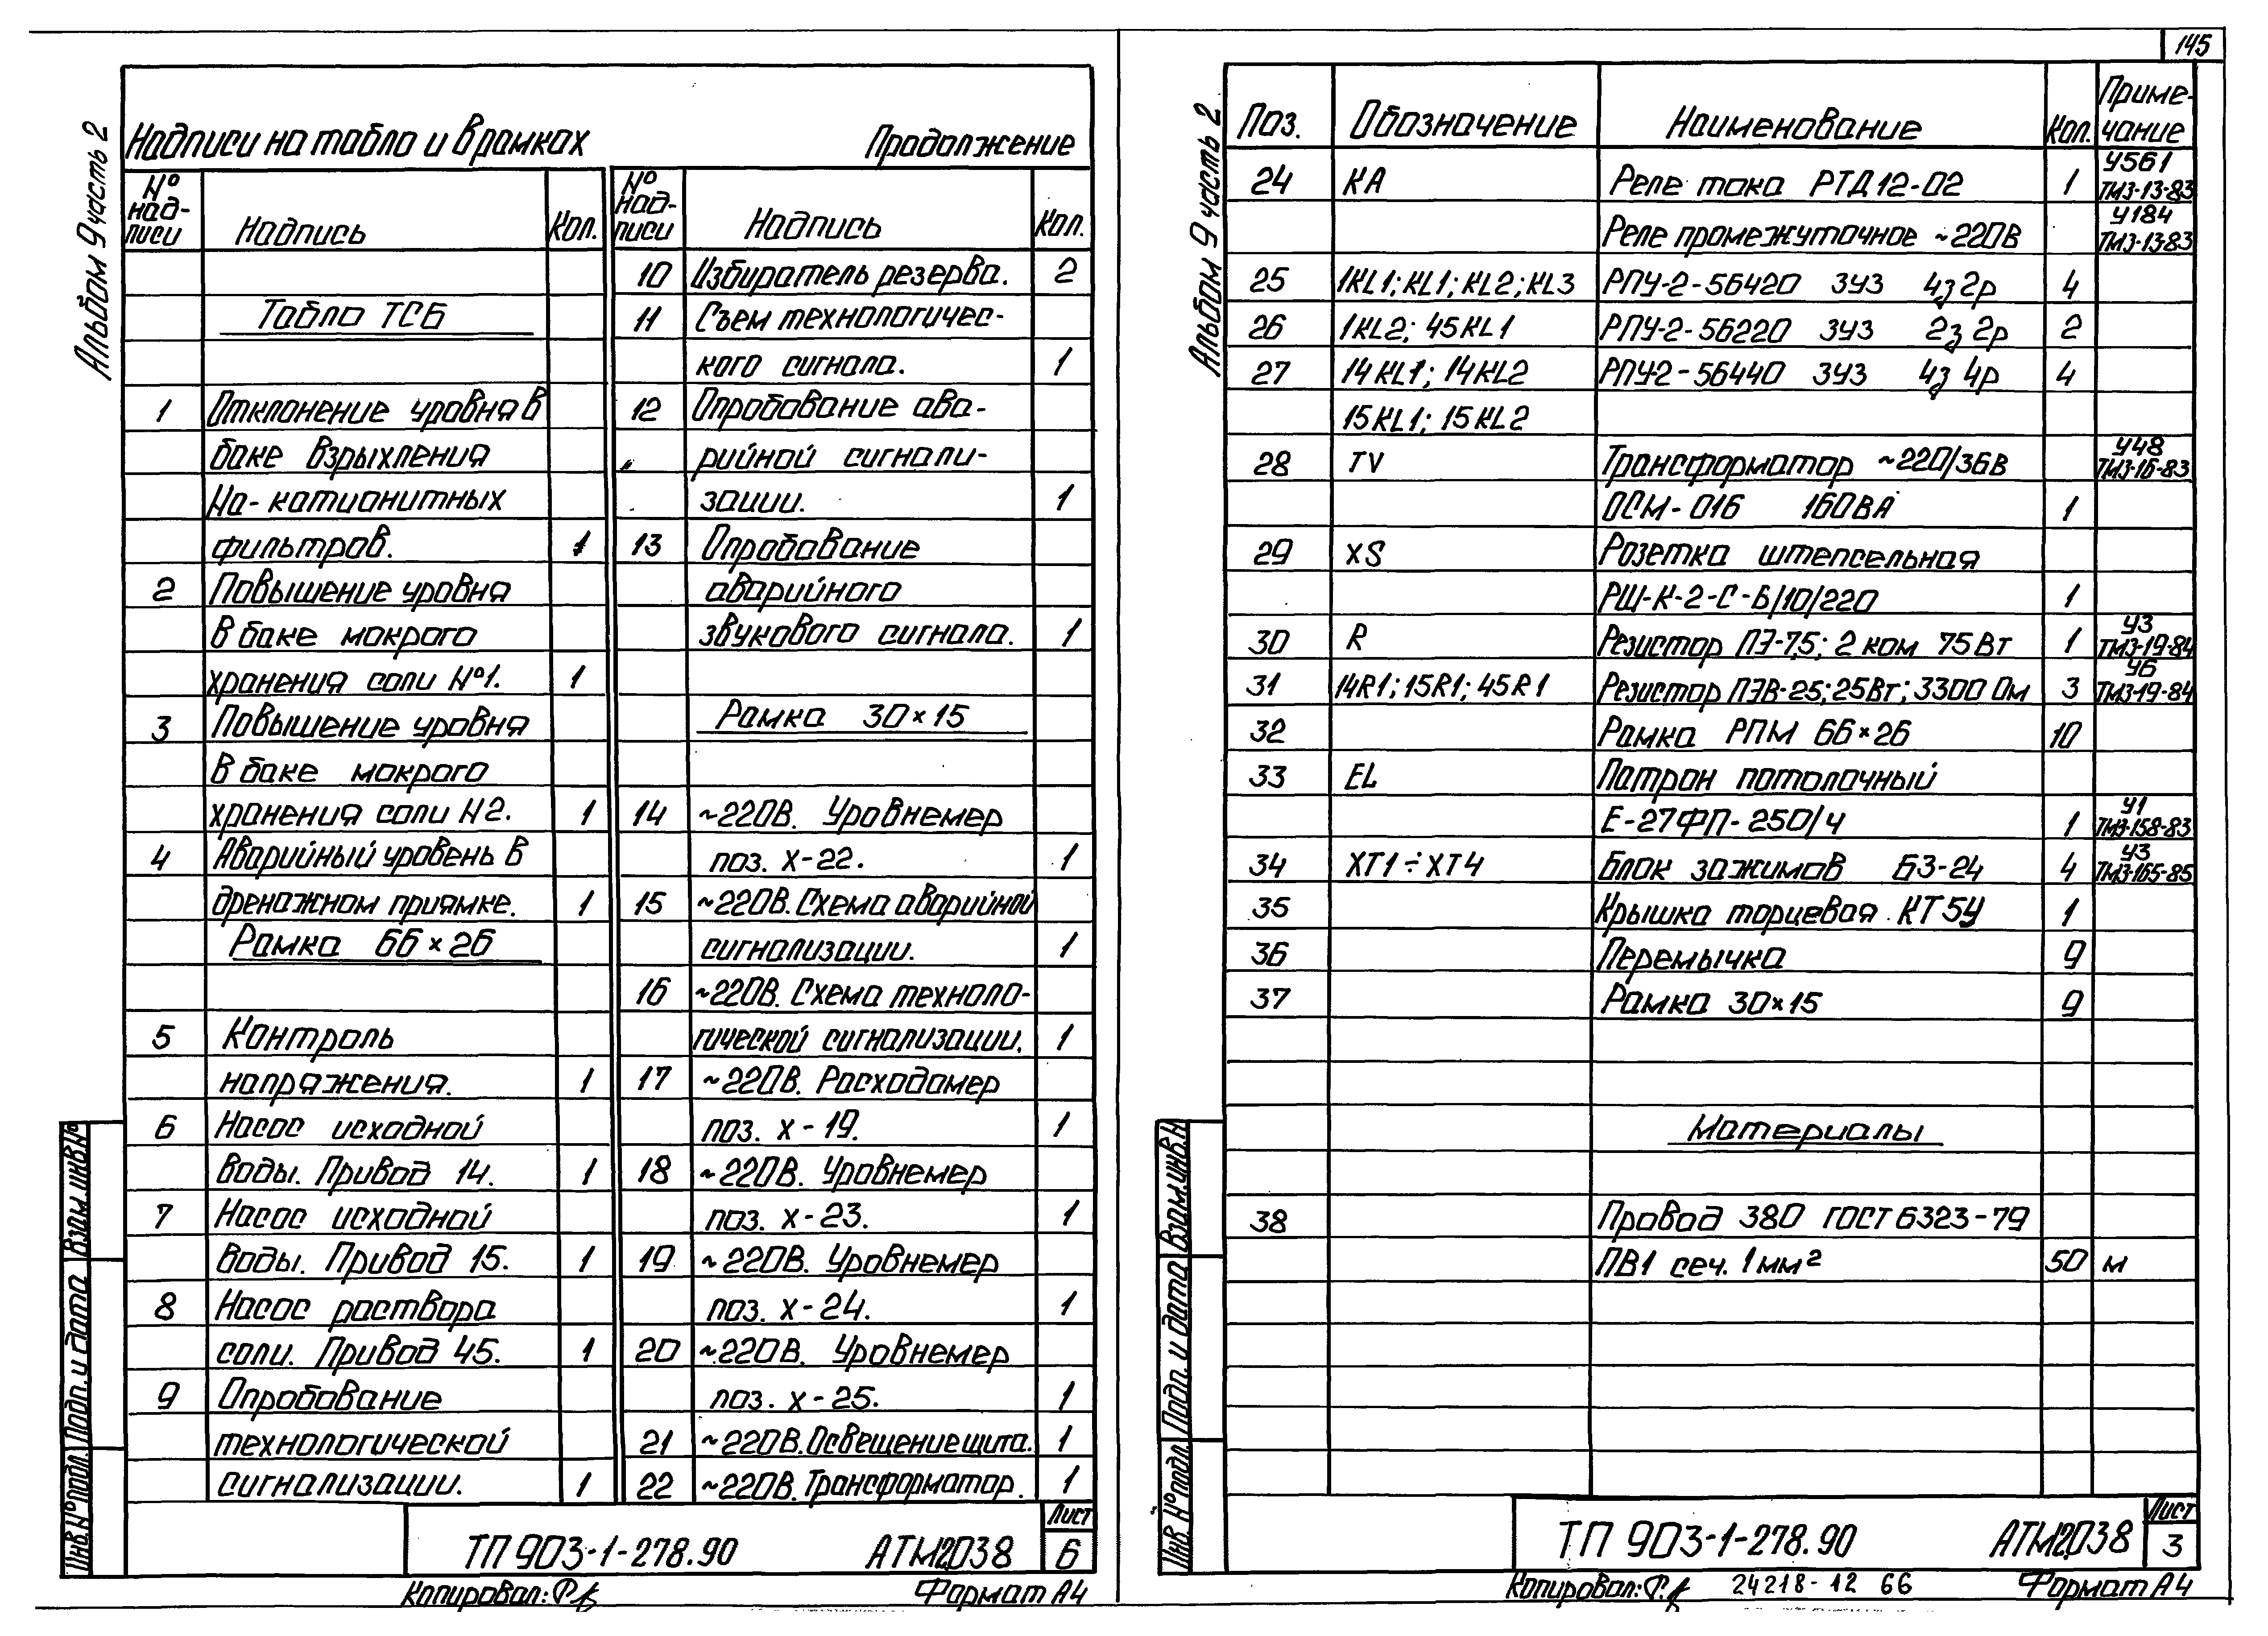 145
Альбом 9 часть 2
Надписи на табло и в рамках Продолжение
№ надписи Надпись Кол.
Табло ТСБ
1 Отклонение уровня в
баке взрыхления
Na-катионитных
фильтров. 1
2 Повышение уровня
в баке мокрого
хранения соли №1. 1
3 Повышение уровня
в баке мокрого
хранения соли N2. 1
4 Аварийный уровень в
дренажном приямке. 1
Рамка 66×26
5 Контроль
напряжения. 1
6 Насос исходной
воды. Привод 14. 1
7 Насос исходной
воды. Привод 15. 1
8 Насос раствора
соли. Привод 45. 1
9 Опробование
технологической
сигнализации. 1
№ надписи Надпись Кол.
10 Избиратель резерва. 2
11 Съем технологичес-
кого сигнала. 1
12 Опробование ава-
рийной сигнали-
зации. 1
13 Опробование
аварийного
звукового сигнала. 1
Рамка 30×15
14 ~220В. Уровнемер
поз. Х-22. 1
15 ~220В. Схема аварийной
сигнализации. 1
16 ~220В. Схема техноло-
гической сигнализации. 1
17 ~220В. Расходомер
поз. Х-19. 1
18 ~220В. Уровнемер
поз. Х-23. 1
19 ~220В. Уровнемер
поз. Х-24. 1
20 ~220В. Уровнемер
поз. Х-25. 1
21 ~220В. Освещение щита. 1
22 ~220В. Трансформатор. 1
Взам.инв.№
Подп. и дата
Инв.№ подл.
ТП 903-1-278.90 АТМ2.038 Лист 6
Копировал: Формат А4
Альбом 9 часть 2
Поз. Обозначение Наименование Кол. Приме-
чание
24 КА Реле тока РТД12-02 1 У561
ТМ3-13-83
Реле промежуточное ~220В У184
ТМ3-13-83
25 1KL1; KL1; KL2; KL3 РПУ-2-56420 3У3 4з 2р 4
26 1KL2; 45KL1 РПУ-2-56220 3У3 2з 2р 2
27 14KL1; 14KL2 РПУ-2-56440 3У3 4з 4р 4
15KL1; 15KL2
28 TV Трансформатор ~220/36В У48
ТМ3-16-83
ОСМ-016 160ВА 1
29 XS Розетка штепсельная
РШ-К-2-С-Б/10/220 1
30 R Резистор ПЭ-7,5; 2 ком 75 Вт 1 У3
ТМ3-19-84
31 14R1; 15R1; 45R1 Резистор ПЭВ-25; 25Вт; 3300 Ом 3 У6
ТМ3-19-84
32 Рамка РПМ 66×26 10
33 EL Патрон потолочный
Е-27ФП-250/4 1 У1
ТМ3-158-83
34 XT1÷XT4 Блок зажимов БЗ-24 4 У3
ТМ3-165-85
35 Крышка торцевая КТ5У 1
36 Перемычка 9
37 Рамка 30×15 9
Материалы
38 Провод 380 ГОСТ 6323-79
ПВ1 сеч. 1 мм² 50 м
Взам.инв.N
Подп. и дата
Инв. № подл.
ТП 903-1-278.90 АТМ2.038 Лист 3
Копировал: 24218-12 66 Формат А4